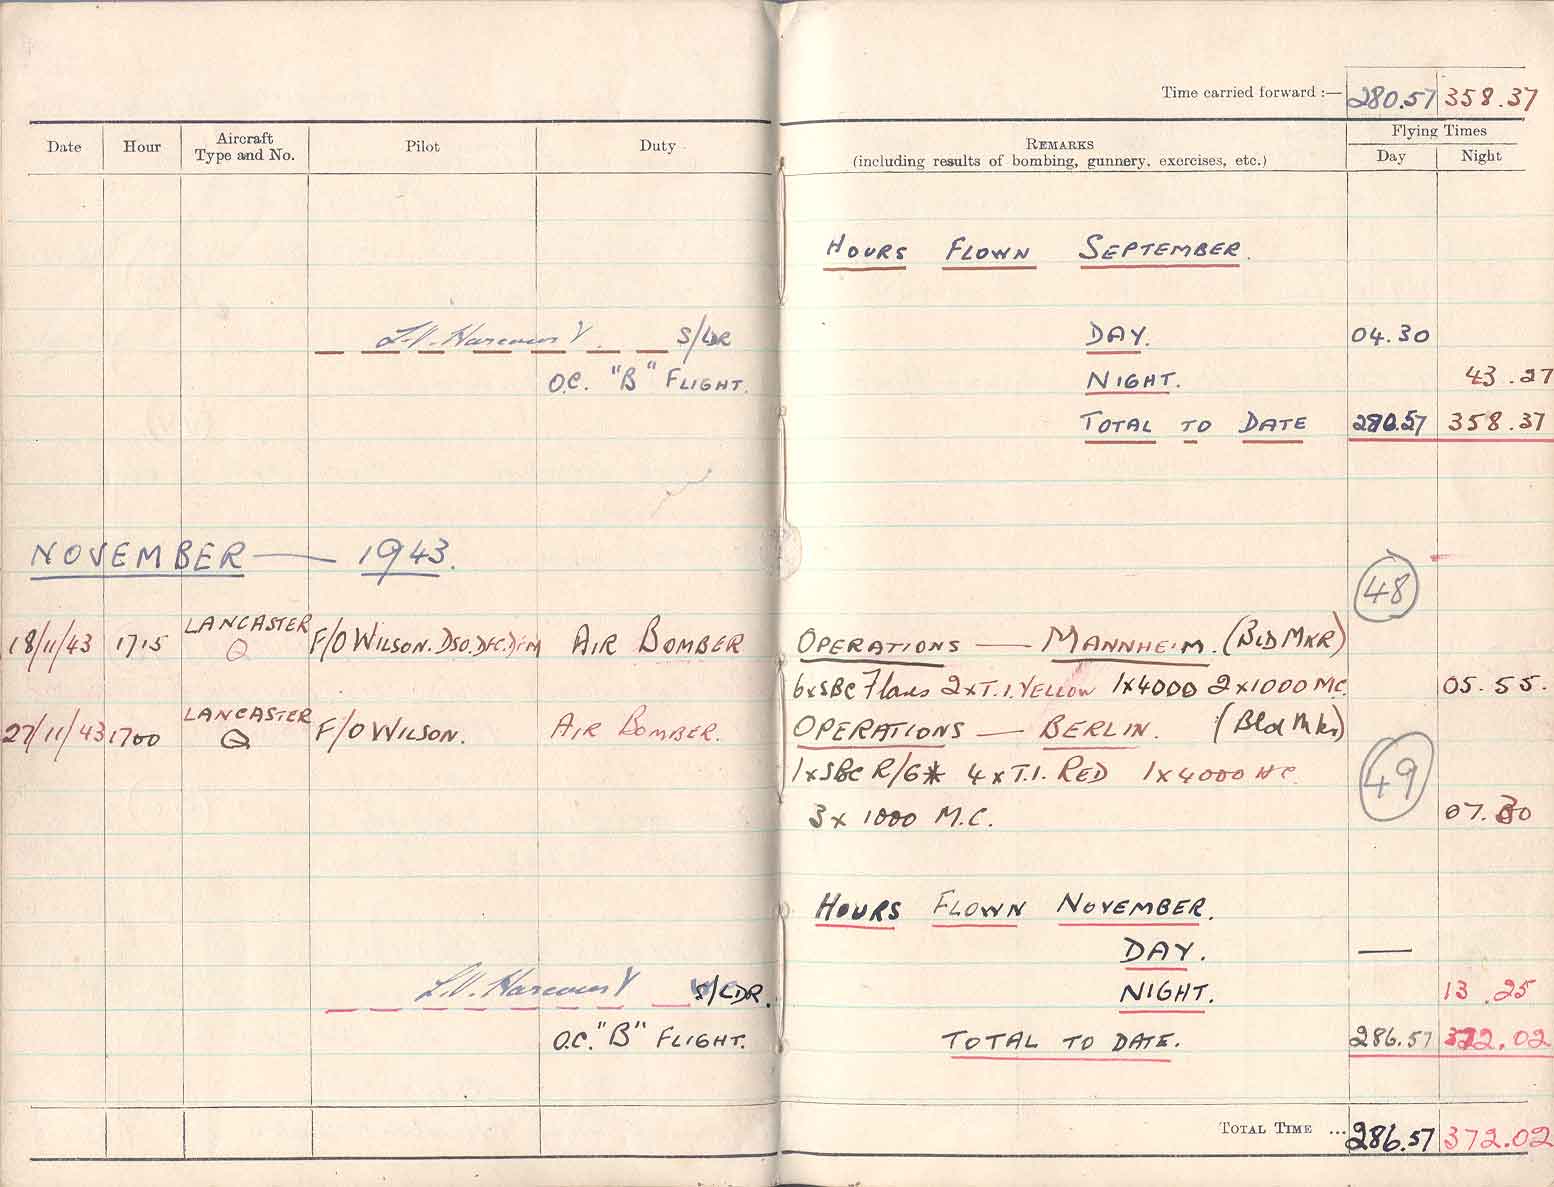 Time carried forward :— 280.57 358.37
Date Hour Aircraft Type and No. Pilot Duty REMARKS (including results of bombing, gunnery, exercises, etc.) Flying Times Day Night
HOURS FLOWN SEPTEMBER.
L.V. Harcourt S/LDR DAY. 04.30
O.C. "B" FLIGHT. NIGHT. 43.27
TOTAL TO DATE 280.57 358.37
NOVEMBER — 1943.
48
18/11/43 1715 LANCASTER Q F/O WILSON. DSO. DFC. DFM AIR BOMBER OPERATIONS — MANNHEIM. (BLD MKR)
6xSBC Flares 2xT.I. YELLOW 1x4000 2x1000 M.C. 05.55.
27/11/43 1700 LANCASTER Q F/O WILSON. AIR BOMBER. OPERATIONS — BERLIN. (Bld Mkr)
1xSBC R/G* 4xT.I. RED 1x4000 HC. 49
3x 1000 M.C. 07.30
HOURS FLOWN NOVEMBER.
DAY. —
L.V. Harcourt S/LDR. NIGHT. 13.25
O.C. "B" FLIGHT. TOTAL TO DATE. 286.57 372.02
TOTAL TIME ... 286.57 372.02